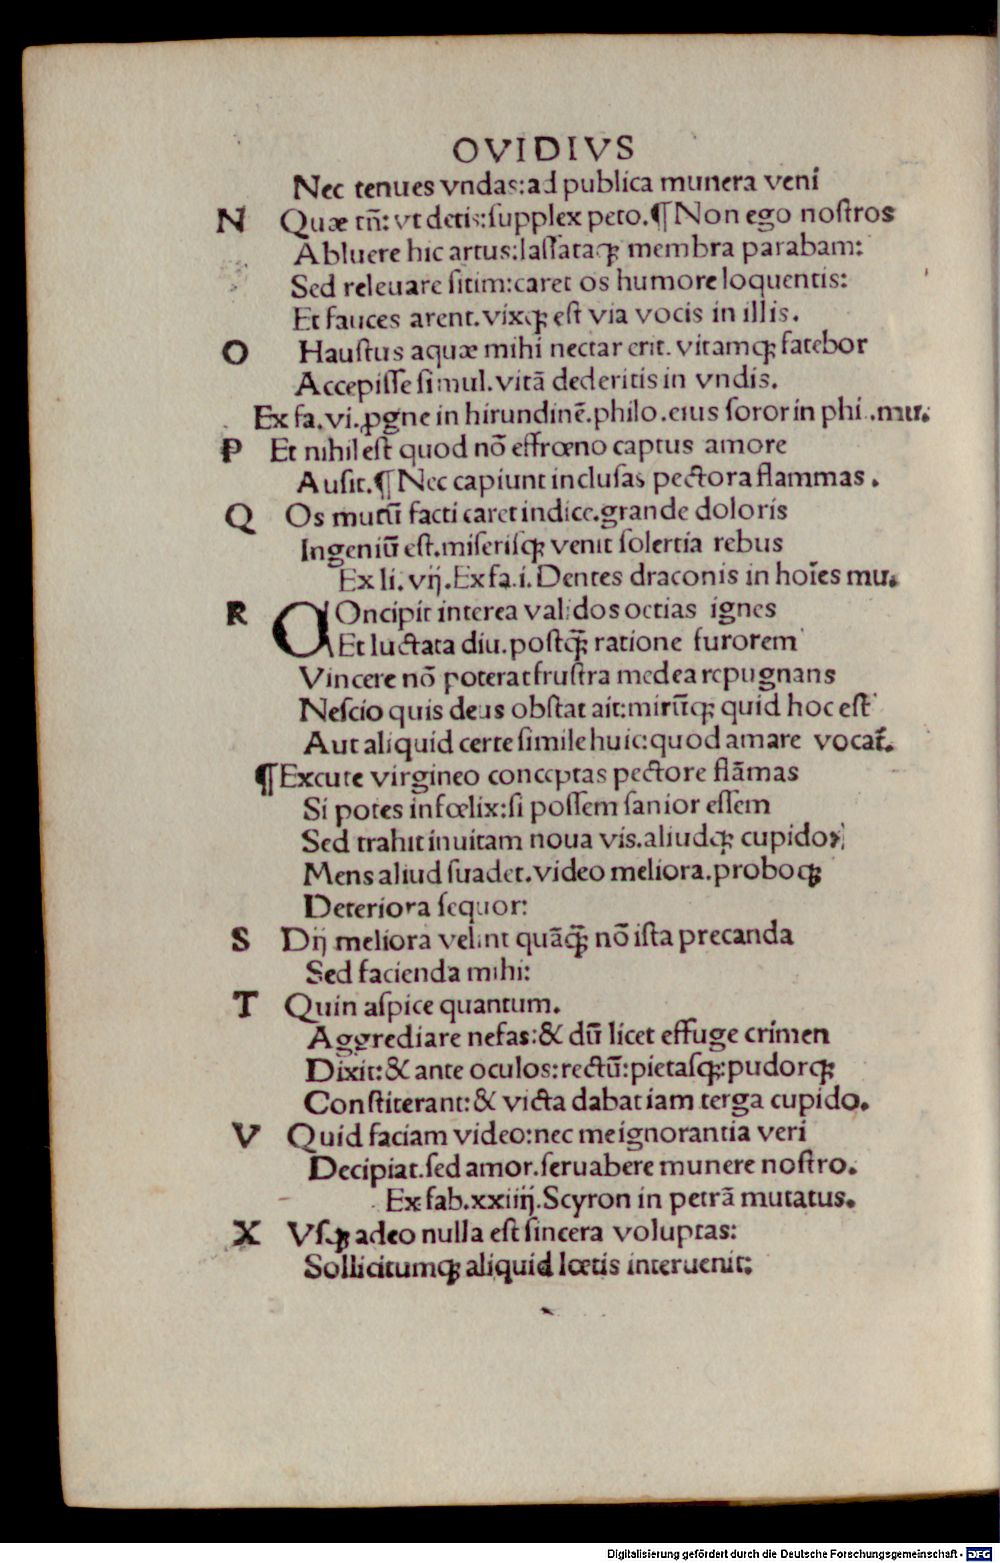 OVIDIVS
Nec tenues vndas:ad publica munera veni
N Quæ tñ: vt detis:ſupplex peto.¶Non ego noſtros
Abluere hic artus:laſſataqꝫ membra parabam:
Sed releuare ſitim:caret os humore loquentis:
Et fauces arent.vixqꝫ eſt via vocis in illis.
O Hauſtus aquæ mihi nectar erit. vitamqꝫ fatebor
Accepiſſe ſimul.vitā dederitis in vndis.
Ex fa.vi.ꝓgne in hirundinē.philo.eius ſoror in phi.mu.
P Et nihil eſt quod nō effrœno captus amore
Auſit.¶Nec capiunt incluſas pectora flammas.
Q Os mutū facti caret indice.grande doloris
Ingeniū eſt.miſeriſqꝫ venit ſolertia rebus
Ex li. vij.Ex fa.i.Dentes draconis in hoīes mu.
R COncipit interea validos oetias ignes
Et luctata diu.poſtqꝫ̄ ratione furorem
Vincere nō poterat fruſtra medea repugnans
Neſcio quis deus obſtat ait:mirūqꝫ quid hoc eſt
Aut aliquid certe ſimile huic:quod amare vocat̄.
¶Excute virgineo conceptas pectore flāmas
Si potes infœlix:ſi poſſem ſanior eſſem
Sed trahit inuitam noua vis.aliudqꝫ cupido;
Mens aliud ſuadet.video meliora.proboqꝫ
Deteriora ſequor:
S Dij meliora velint quāqꝫ̄ nō iſta precanda
Sed facienda mihi:
T Quin aſpice quantum.
Aggrediare nefas:& dū licet effuge crimen
Dixit:& ante oculos:rectū:pietaſqꝫ:pudorqꝫ
Conſtiterant:& victa dabat iam terga cupido.
V Quid faciam video:nec me ignorantia veri
Decipiat.ſed amor.ſeruabere munere noſtro.
Ex fab.xxiiij.Scyron in petrā mutatus.
X Vſqꝫ adeo nulla eſt ſincera voluptas:
Sollicitumqꝫ aliquid lœtis interuenit:
Digitalisierung gefördert durch die Deutsche Forschungsgemeinschaft - DFG